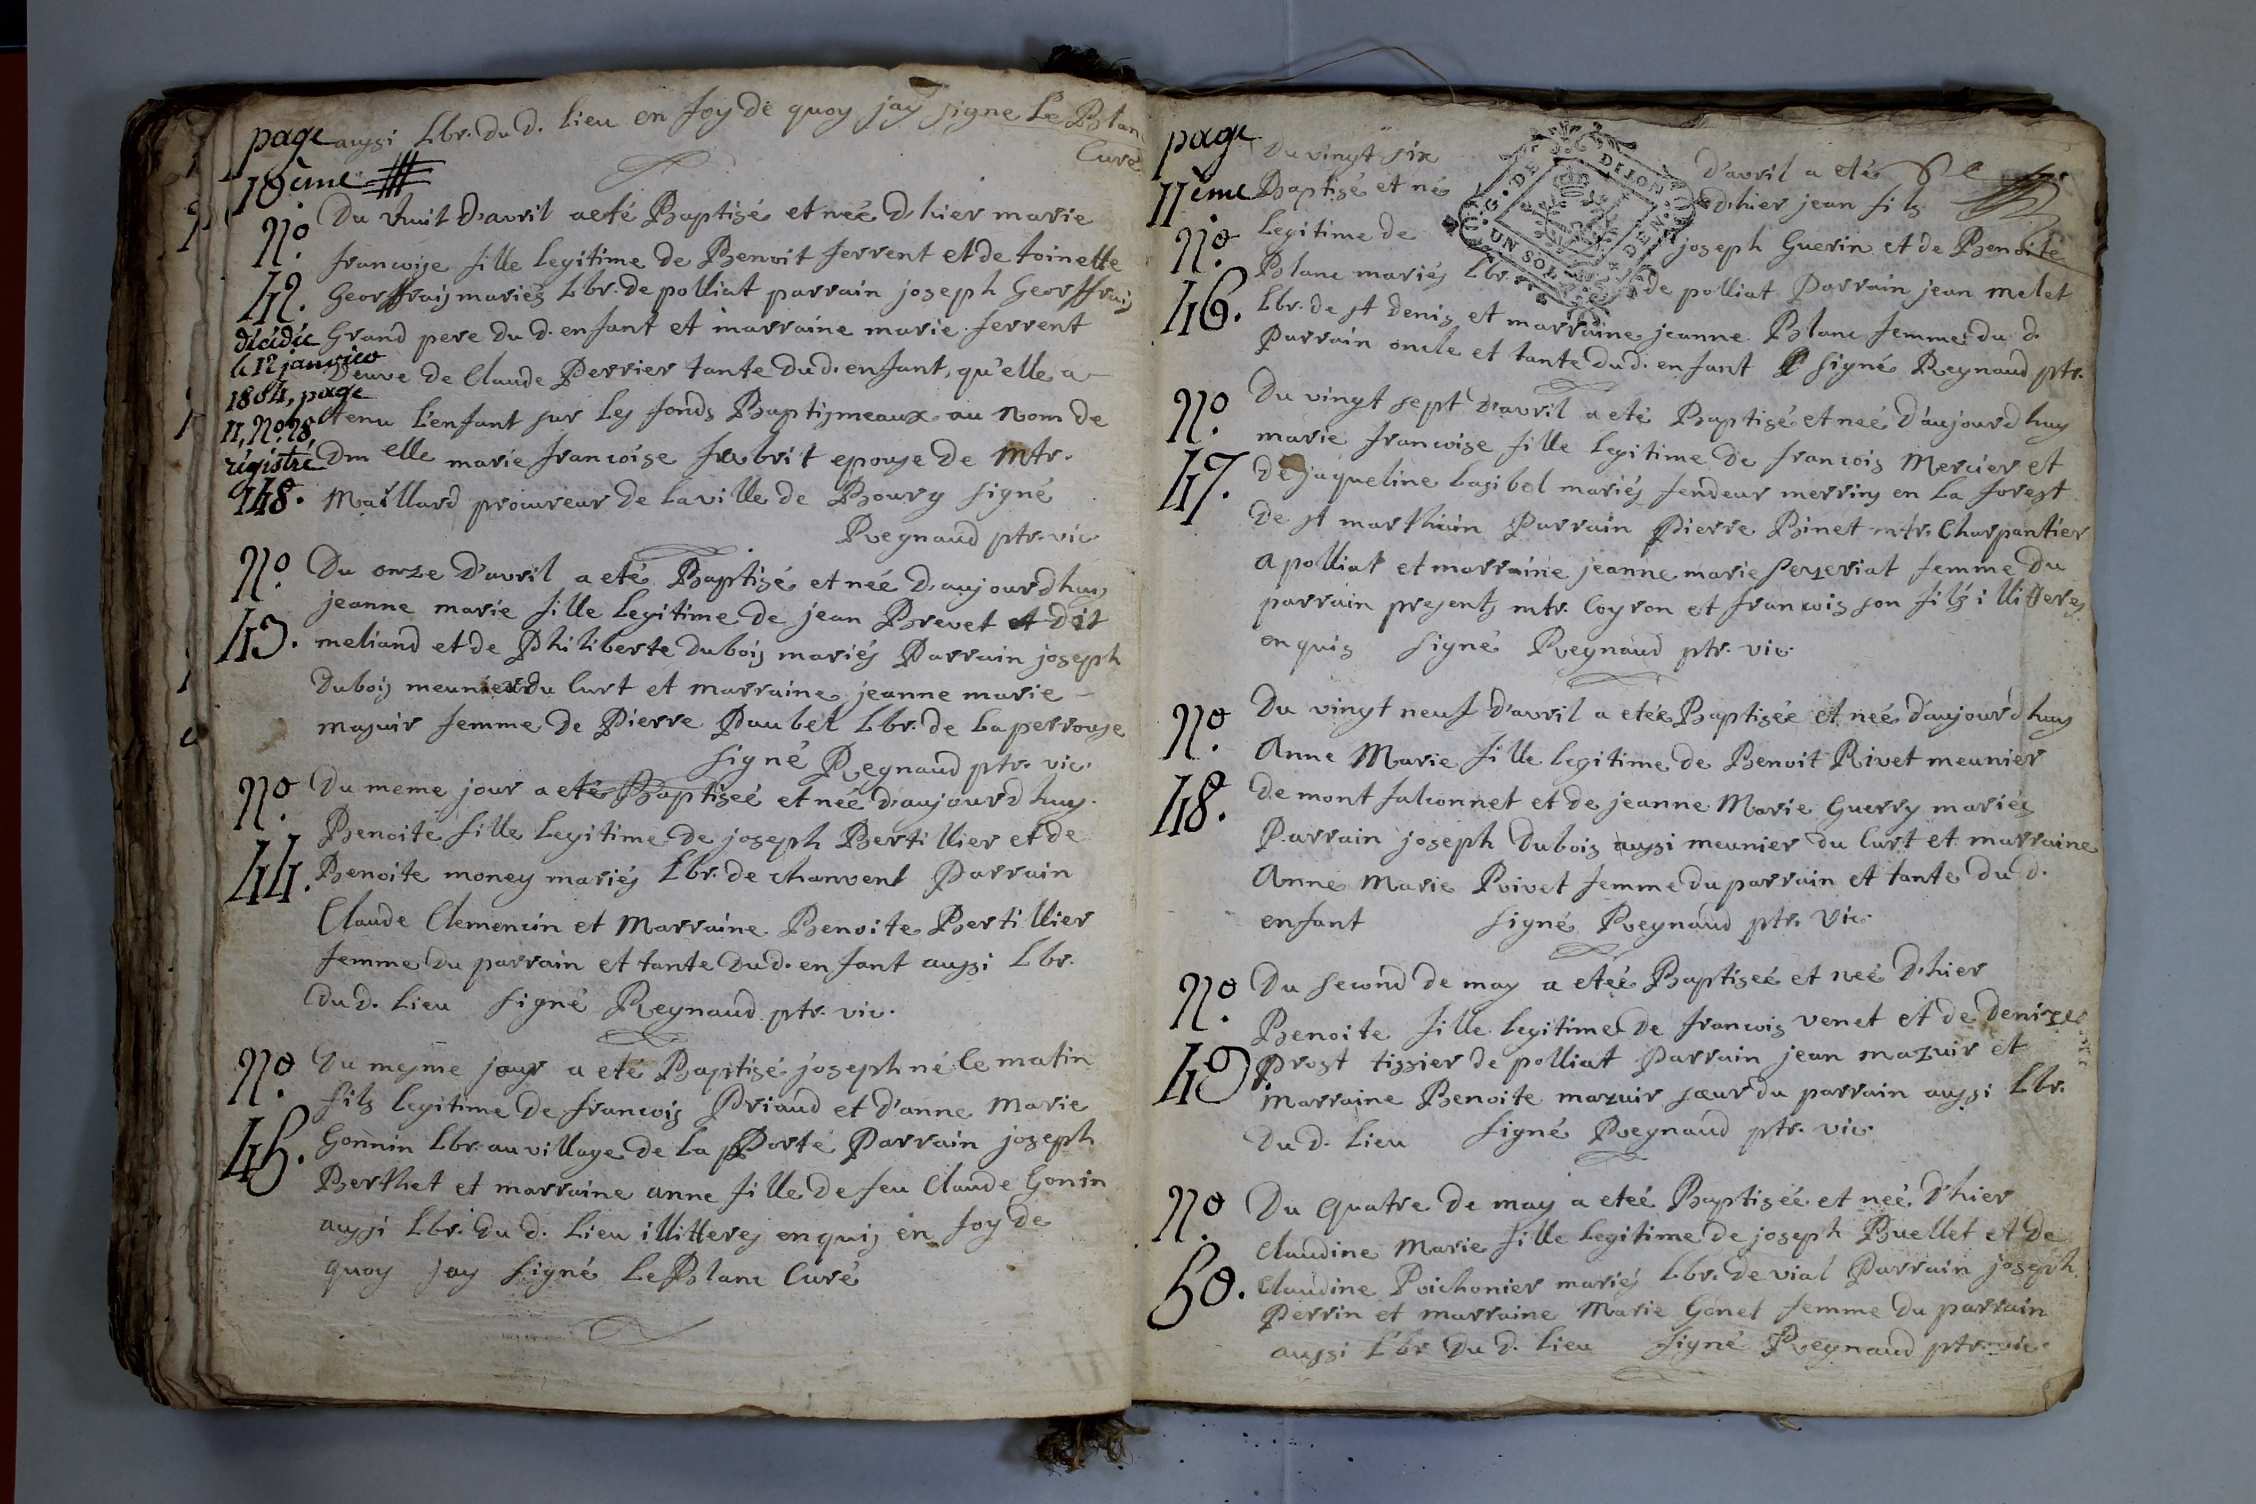 page aussi Lbr. du d. lieu en foy de quoy jay signe Le Blanc
10ème Curé
N.º 42. Du huit d'avril a eté Baptisé et neé d'hier marie
francoise fille legitime de Benoit ferrent et de toinette
Geoffraij mariés Lbr. de polliat parrain joseph Geoffraij
Grand pere du d. enfant et marraine marie ferrent
veuve de Claude Perrier tante du d. enfant, qu'elle a
tenu L'enfant sur les fonds Baptismeaux au Nom de
Dm elle marie francoise frabrit epouse de Mtr.
Maillard procureur de la ville de Bourg signé
Regnaud ptr. vic.
décédée
le 12 janvier
1804, page
11, N.º 28
registré
148.
N.º 43. Du onze d'avril a eté Baptisé et née d'aujourdhuy
jeanne marie fille legitime de jean Brevet et dit
meliand et de Philiberte dubois mariés Parrain joseph
dubois meunier du Curt et marraine jeanne marie
masuir femme de Pierre Paubel Lbr. de la perrouse
signé Regnaud ptr. vic.
N.º 44. Du meme jour a eté Baptiseé et née d'aujourdhuy.
Benoite fille legitime de joseph Bertillier et de
Benoite money mariés Lbr. de chanvent Parrain
Claude Clemencin et Marraine Benoite Bertillier
femme du parrain et tante du d. enfant aussi Lbr.
du d. Lieu signé Regnaud ptr. vic.
N.º 45. Du mesme jour a eté Baptisé joseph né le matin
fils legitime de francois Priaud et d'anne Marie
Gonnin Lbr. au village de la Porte Parrain joseph
Berthet et marraine anne fille de feu Claude Gonin
aussi Lbr. du d. Lieu illitteres enquis en foy de
quoy jay signé Le Blanc Curé
page
11ème
G. DE DIJON
UN SOL
N.º 46. Du vingt six d'avril a eté
Baptisé et né d'hier jean fils
Legitime de joseph Guerin et de Benoite
Blanc mariés Lbr. de polliat Parrain jean melet
Lbr. de st denis et marraine jeanne Blanc femme du d.
Parrain oncle et tante du d. enfant signé Regnaud ptr.
N.º 47. Du vingt sept d'avril a eté Baptisé et neé d'aujourdhuy
marie francoise fille legitime de francois Mercier et
de jaqueline Lasibol mariés fendeur merrins en la forest
de st marthiain Parrain Pierre Binet mtr. Charpantier
a polliat et marraine jeanne marie Peyzeriat femme du
parrain presents mtr. Coyron et francois son fils illitteres
enquis signé Regnaud ptr. vic.
N.º 48. Du vingt neuf d'avril a eteé Baptiseé et neé d'aujourdhuy
Anne Marie fille legitime de Benoit Rivet meunier
de mont falconnet et de jeanne Marie Guerry mariés
Parrain joseph dubois aussi meunier du Curt et marraine
Anne Marie Rivet femme du parrain et tante du d.
enfant signé Regnaud ptr. vic.
N.º 49. Du second de may a eteé Baptiseé et neé d'hier
Benoite fille legitime de francois venet et de denize
Prost tissier de polliat Parrain jean mazuir et
marraine Benoite mazuir sœur du parrain aussi Lbr.
du d. Lieu signé Regnaud ptr. vic.
N.º 50. Du quatre de may a eteé Baptiseé et neé d'hier
Claudine Marie fille legitime de joseph Buellet et de
Claudine Poichonier mariés Lbr. de vial Parrain joseph
Perrin et marraine Marie Gonet femme du parrain
aussi Lbr du d. Lieu signé Regnaud ptr. vic.